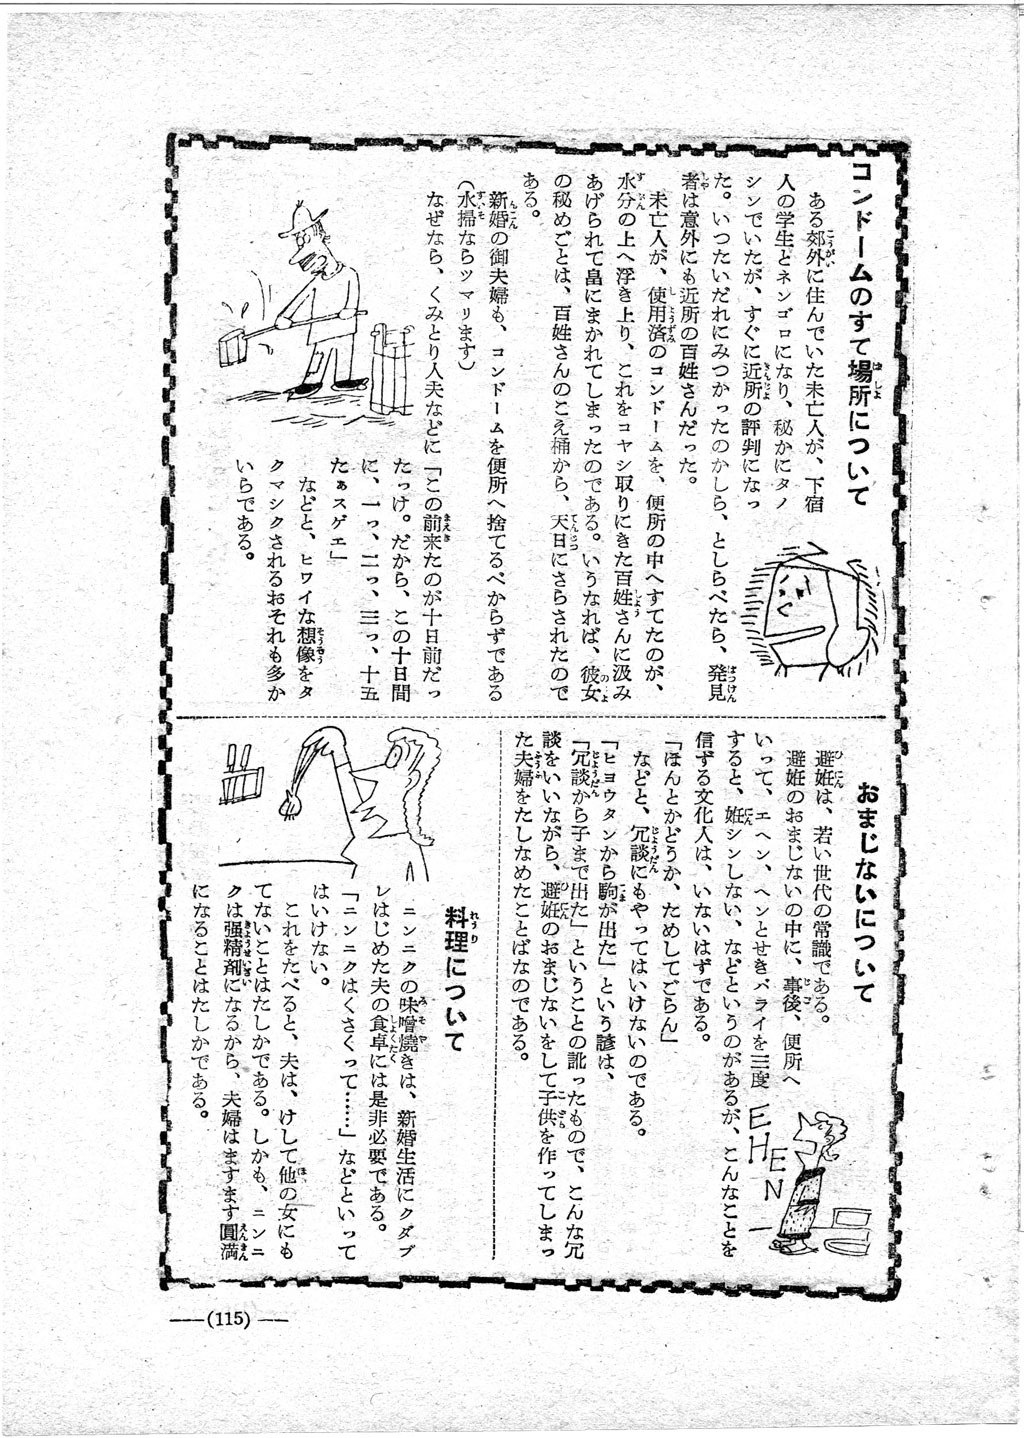 コンドームのすて場所について
ある郊外に住んでいた未亡人が、下宿
人の学生とネンゴロになり、秘かにタノ
シンでいたが、すぐに近所の評判になっ
た。いつたいだれにみつかったのかしら、としらべたら、発見
者は意外にも近所の百姓さんだった。
未亡人が、使用済のコンドームを、便所の中へすてたのが、
水分の上へ浮き上り、これをコヤシ取りにきた百姓さんに汲み
あげられて畠にまかれてしまったのである。いうなれば、彼女
の秘めごとは、百姓さんのこえ桶から、天日にさらされたので
ある。
新婚の御夫婦も、コンドームを便所へ捨てるべからずである
(水掃ならツマリます)
なぜなら、くみとり人夫などに
「この前来たのが十日前だっ
たっけ。だから、この十日間
に、一っ、二っ、三っ、十五
たぁスゲエ」
などと、ヒワイな想像をタ
クマシクされるおそれも多か
いらである。
おまじないについて
避妊は、若い世代の常識である。
避妊のおまじないの中に、事後、便所へ
いって、エヘン、ヘンとせきバライを三度
すると、妊シンしない、などというのがあるが、こんなことを
信ずる文化人は、いないはずである。
「ほんとかどうか、ためしてごらん」
などと、冗談にもやってはいけないのである。
「ヒョウタンから駒が出た」という諺は、
「冗談から子まで出た」ということの訛ったもので、こんな冗
談をいいながら、避妊のおまじないをして子供を作ってしまっ
た夫婦をたしなめたことばなのである。
EHEN
料理について
ニンニクの味噌焼きは、新婚生活にクダブ
レはじめた夫の食卓には是非必要である。
「ニンニクはくさくって……」などといって
はいけない。
これをたべると、夫は、けして他の女にも
てないことはたしかである。しかも、ニンニ
クは强精剤になるから、夫婦はますます圓満
になることはたしかである。
(115)